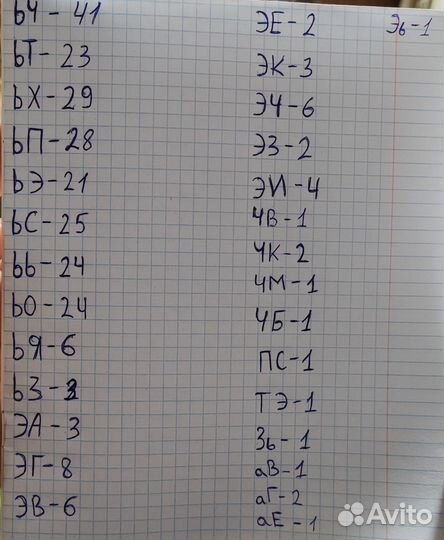 ЬЧ - 41
ЬТ - 23
ЬХ - 29
ЬП - 28
ЬЭ - 21
ЬС - 25
ЬЬ - 24
ЬО - 24
ЬЯ - 6
ЬЗ - 2
ЭА - 3
ЭГ - 8
ЭВ - 6
ЭЕ - 2
ЭК - 3
ЭЧ - 6
ЭЗ - 2
ЭИ - 4
ЧВ - 1
ЧК - 2
ЧМ - 1
ЧБ - 1
ПС - 1
ТЭ - 1
Зь - 1
аВ - 1
аГ - 2
аЕ - 1
Эь - 1
Avito